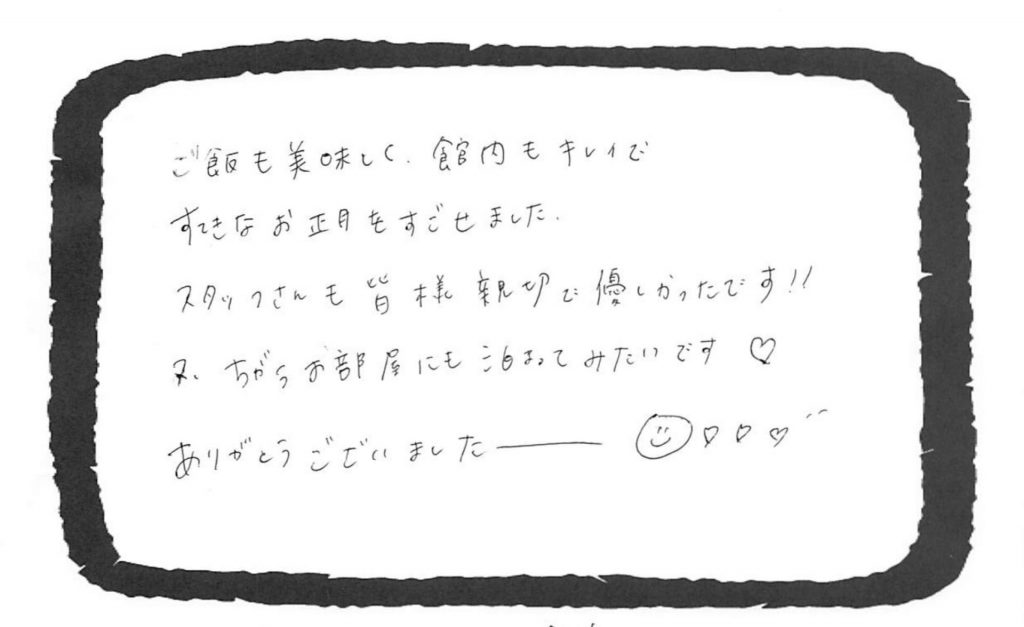 ご飯も美味しく、館内もキレイで
すてきなお正月をすごせました.
スタッフさんも皆様親切で優しかったです!!
又、ちがうお部屋にも泊まってみたいです♡
ありがとうございました―― ☺♡♡♡